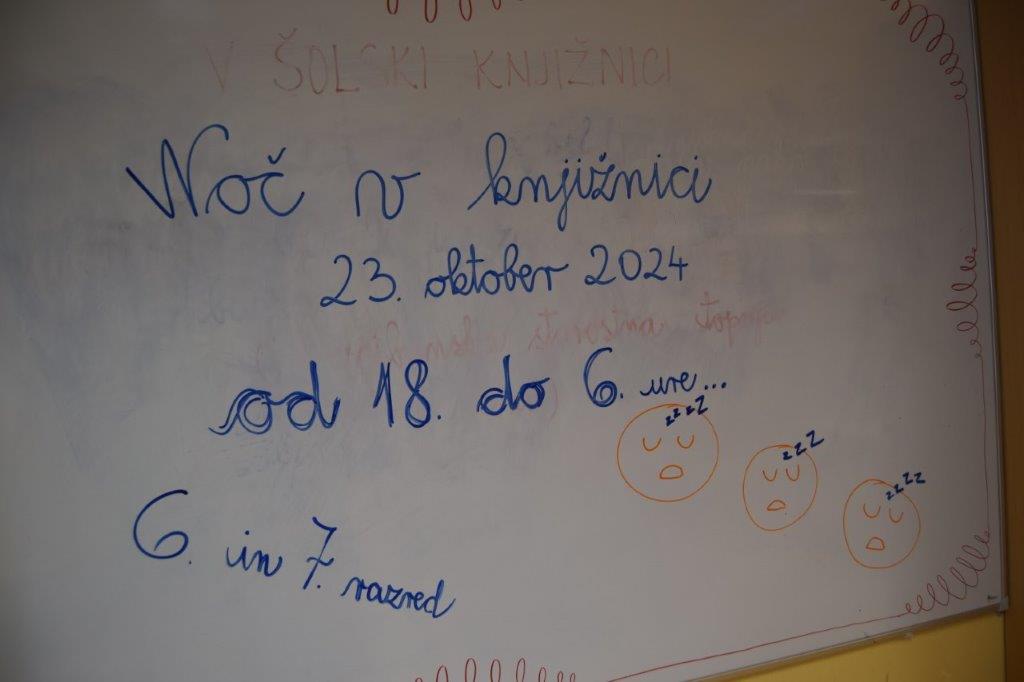 V ŠOLSKI KNJIŽNICI
Noč v knjižnici
23. oktober 2024
starostna stopnja
od 18. do 6. ure...
zzzZ
zzZ
zzzz
6. in 7. razred